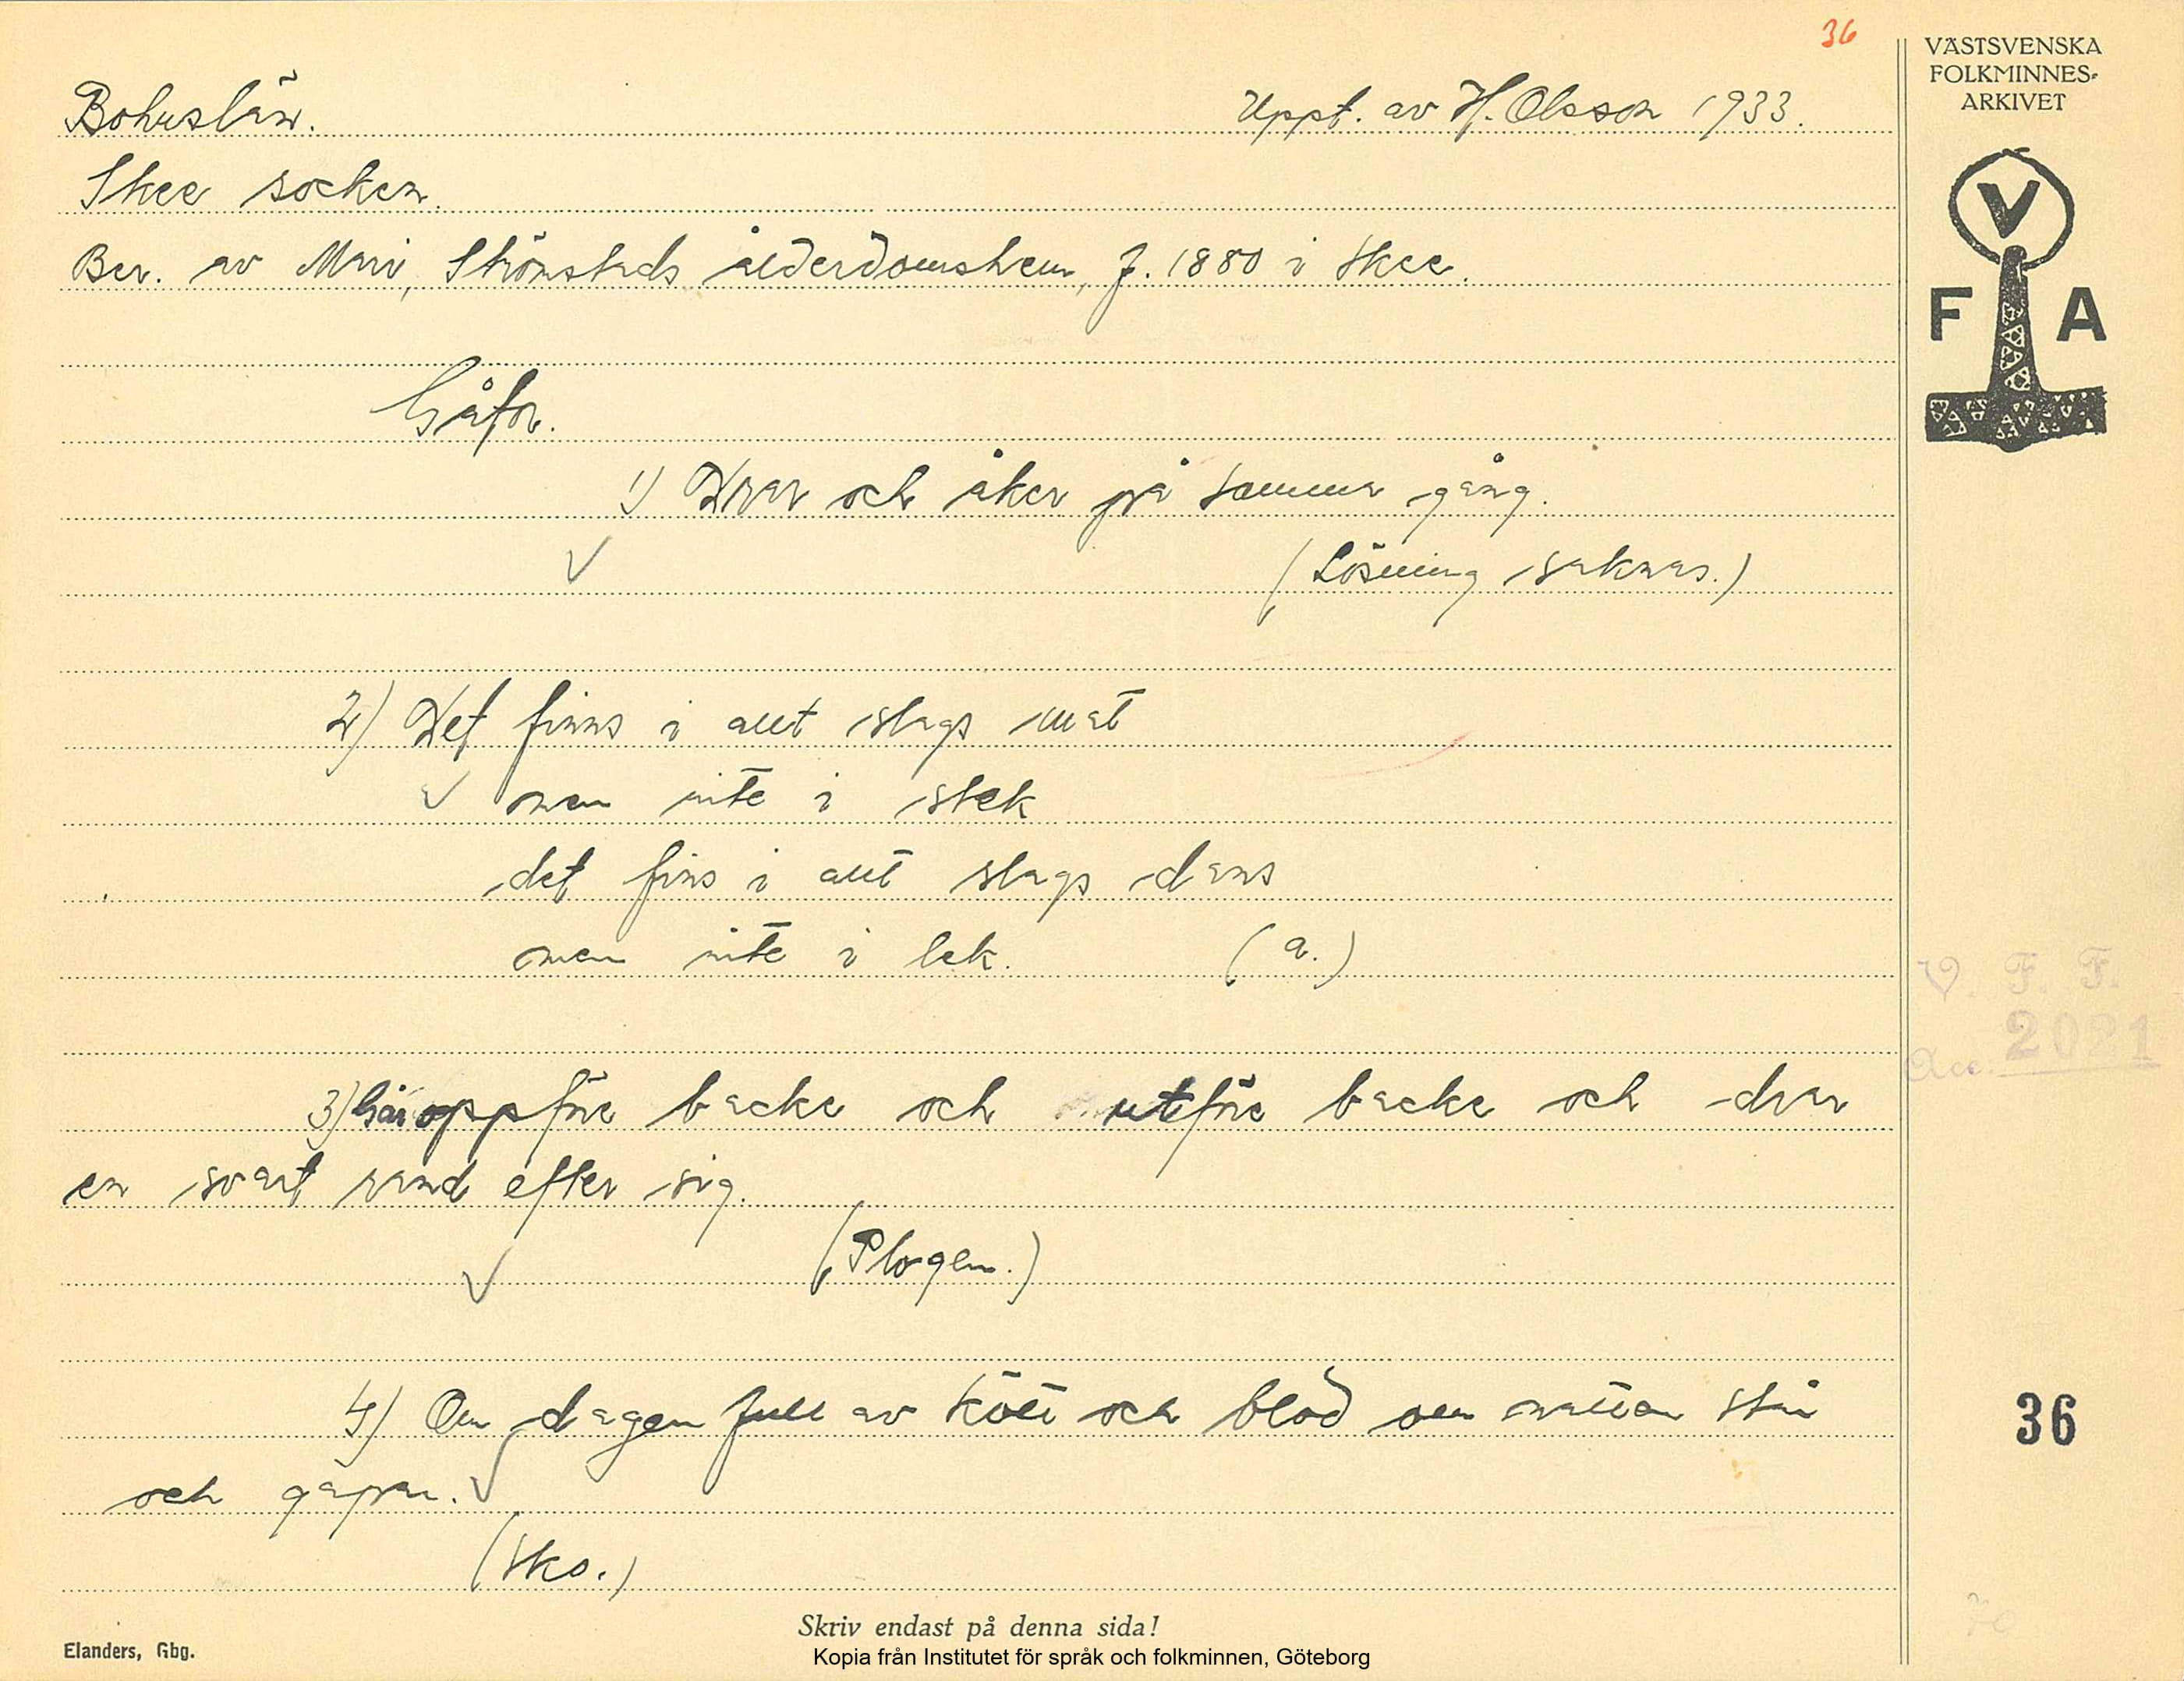 36
VÄSTSVENSKA
FOLKMINNES-
ARKIVET
Bohuslän.
Uppt. av H. Olsson 1933.
Skee socken.
Ber. av Mari, Strömstads ålderdomshem, f. 1880 i Skee.
V
F A
Gåtor.
1) Drar och åker på samma gång.
(Lösning saknas.)
2) Det finns i allt slags mat
men inte i stek
det fins i allt slags dans
men inte i lek. (a.)
V. F. F.
Acc. 2021
3) Går oppföre backe och utföre backe och drar
en svart rand efter sig.
(Plogen.)
4) Om dagen full av kött och blod om natten står
och gapar.
36
(Sko.)
Skriv endast på denna sida!
Elanders, Gbg.
Kopia från Institutet för språk och folkminnen, Göteborg